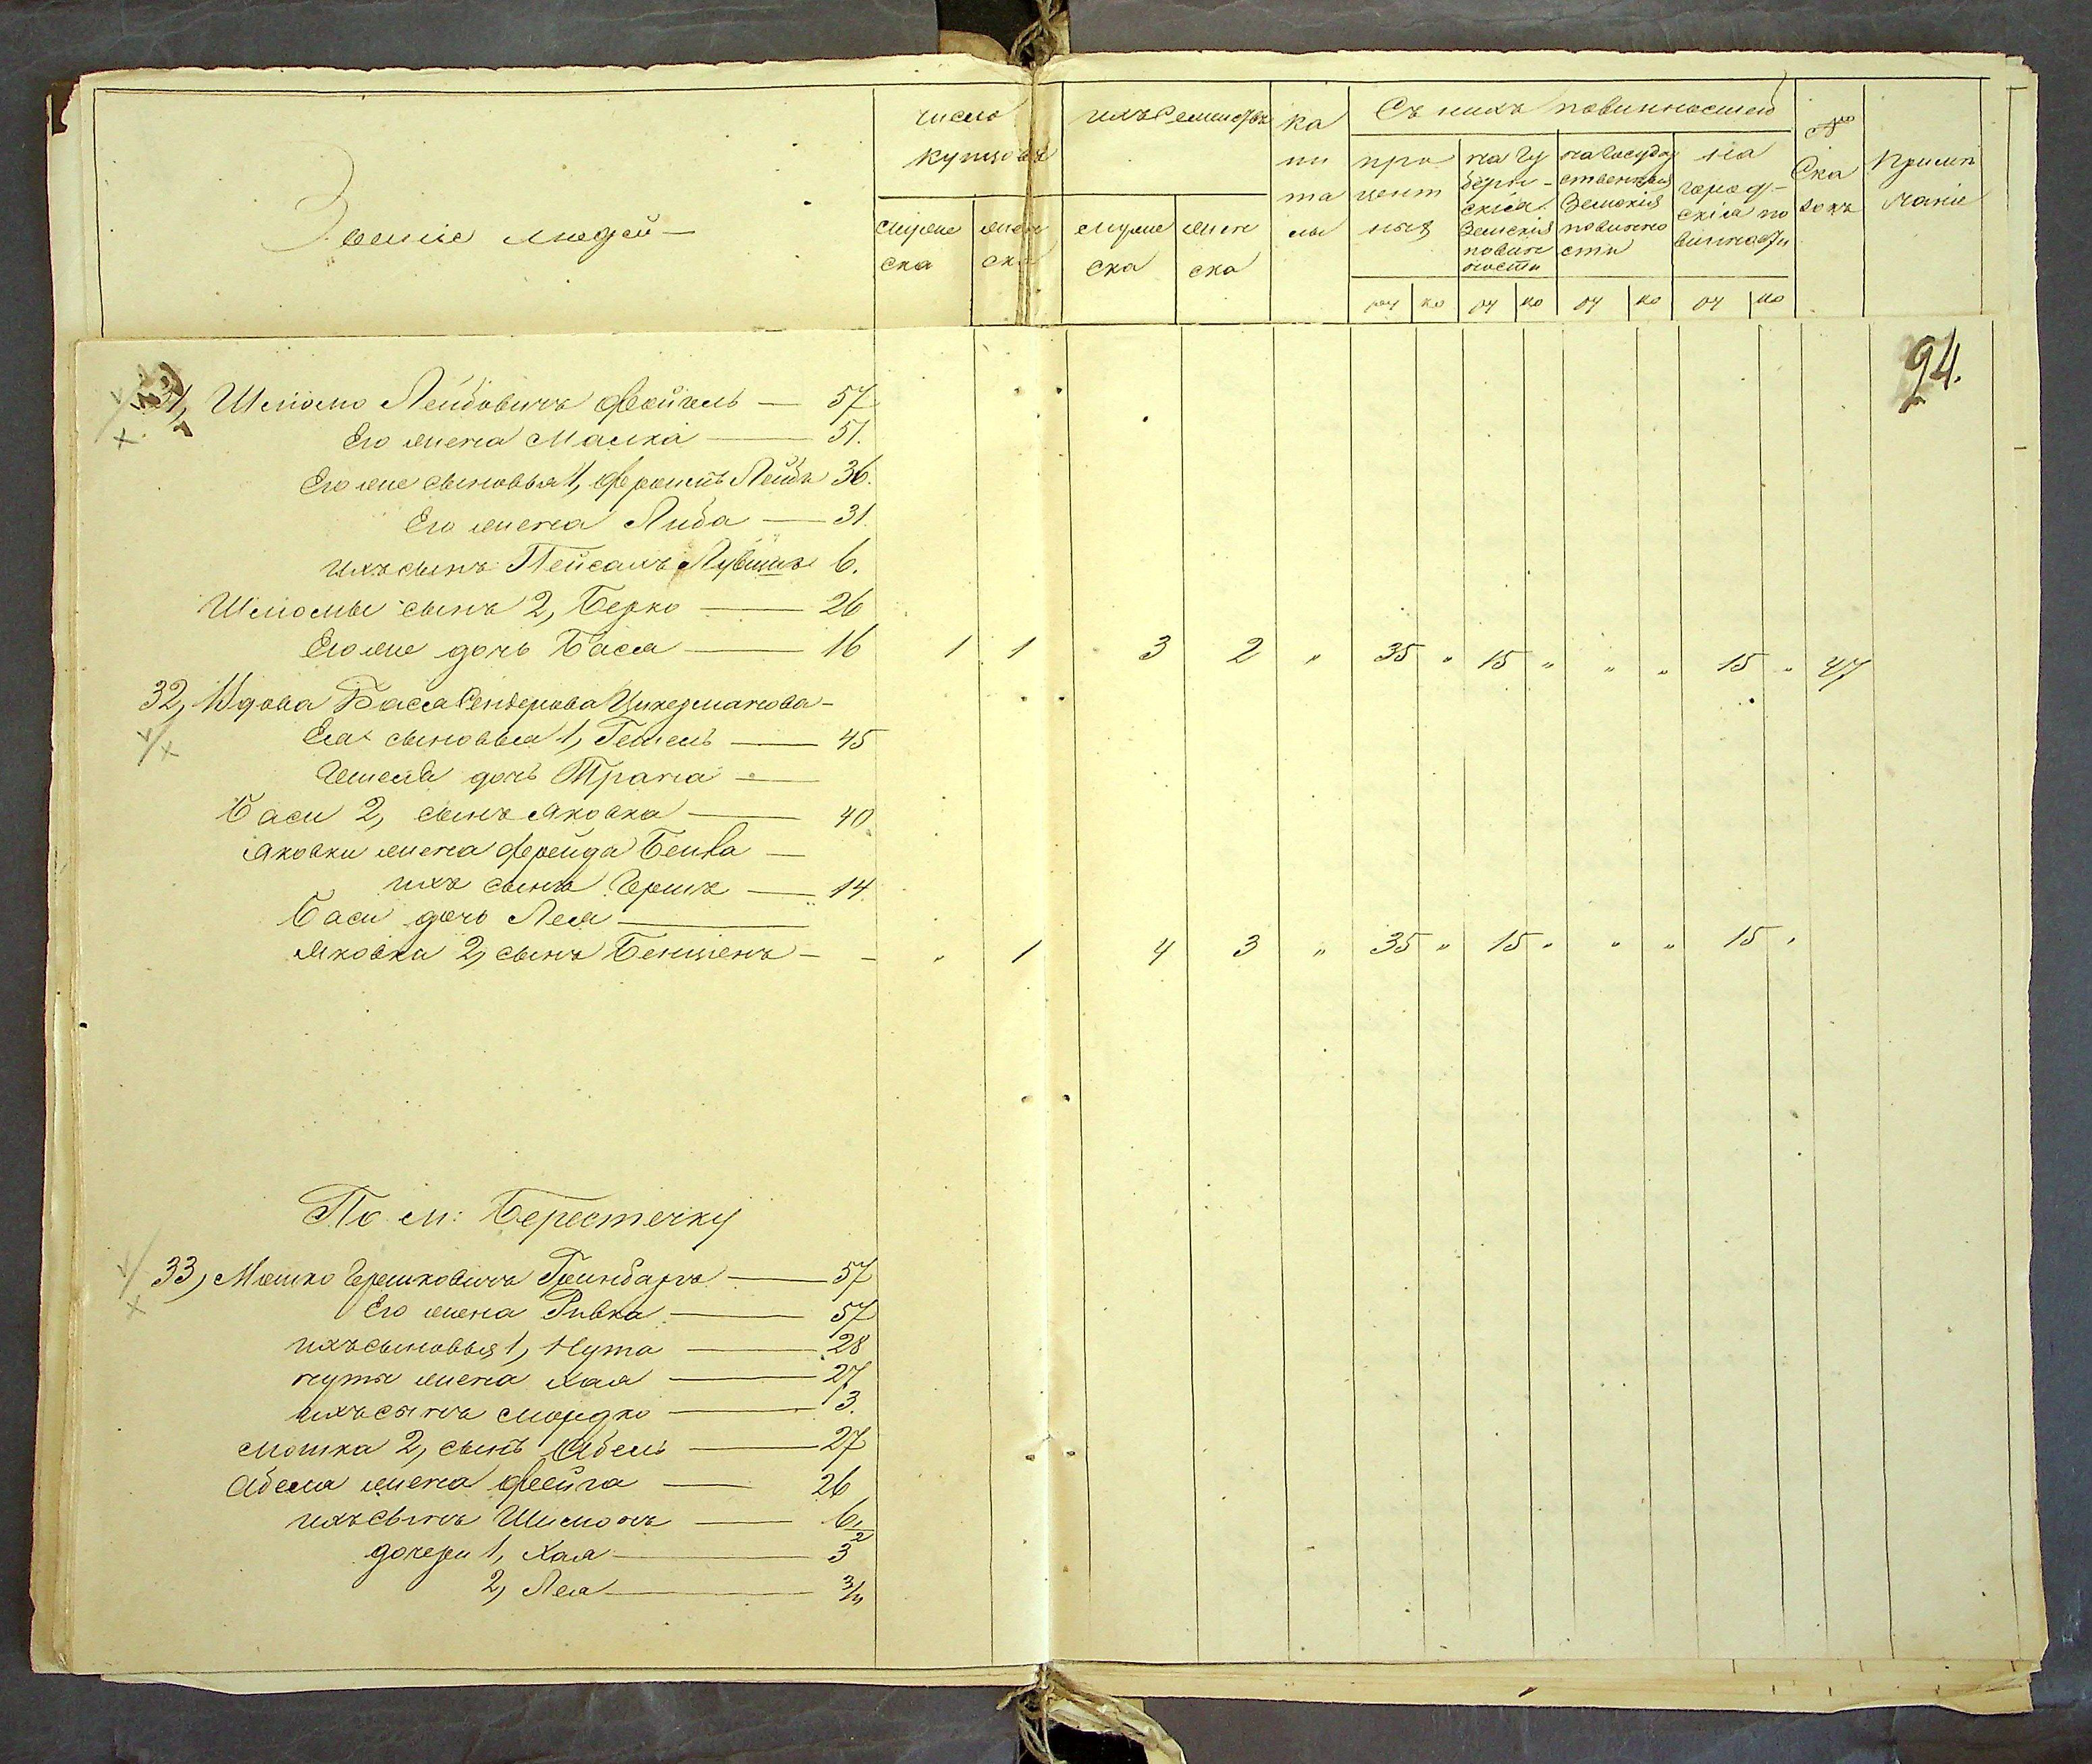 Званіе людей
число купцовъ
ихъ Семействъ
ка пи та лы
Съ нихъ повинностей
№ Ска зокъ
Примѣ чаніе
муже ска
жен ска
муже ска
жен ска
про цент ныя
на Гу берн- скія Земскія повин ности
на Государ ственныя Земскія повинно сти
на город- скія по винности
ру ко ру ко ру ко ру ко
94.
31, Шліомо Лейбовичъ Фейгель — 57
Его жена Малка — 51.
Его же сыновья 1, Фроимъ Лейба 36.
Его жена Либа — 31.
ихъ сынъ Пейсахъ 6.
Шліомы сынъ 2, Берко — 26
Его же дочь Бася — 16 1 1 3 2 " 35 " 15 " " " 15 " 47
32, Вдова Бася Сендерова Цикерманова -
Ея сыновья 1, Гешель — 45
Гешеля дочь Трана —
Баси 2, сынъ Яковка — 40
Яковки жена Фрейда Бейла —
ихъ сынъ Гершъ — 14.
Баси дочь Лея —
Яковка 2, сынъ Бенціенъ - - " 1 4 3 " 35 " 15 " " " 15 "
По м: Берестечку
33, Мошко Гершковичъ Гринбаргъ — 57
Его жена Ривка — 57
ихъ сыновья 1, Нута — 28
нуты жена Хая — 27
ихъ сынъ Мордко — 3.
Мошка 2, сынъ Абель — 27
Абеля жена Фейга — 26
ихъ сынъ Шимонъ — 6 1/2
дочери 1, Хая — 3
2, Лея — 3/4